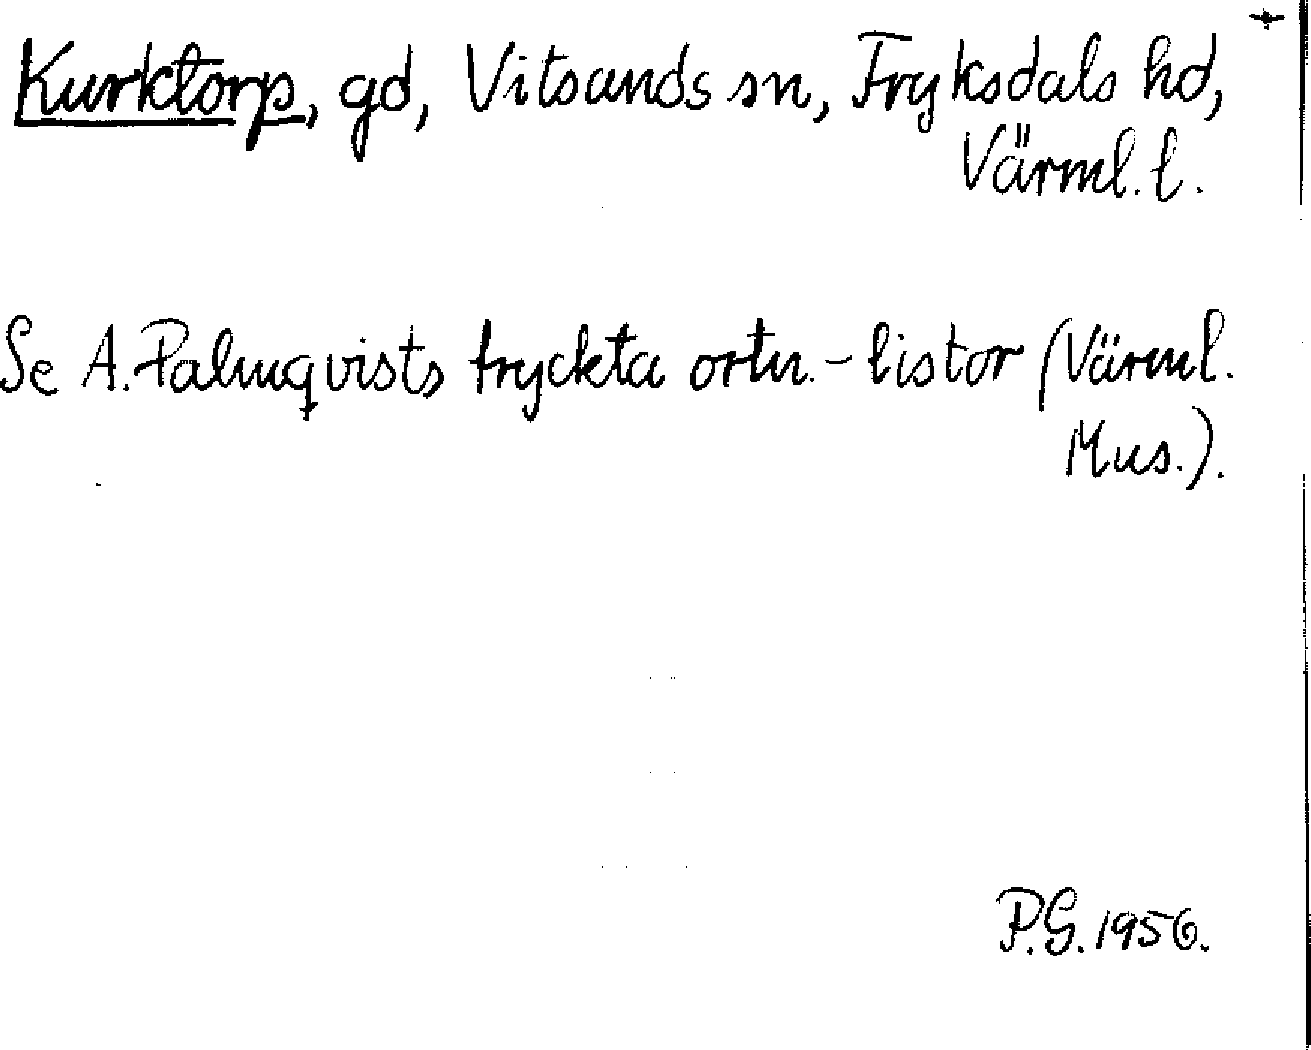 Kurktorp, gd, Vitsands sn, Fryksdals hd,
Värml. l.
Se A. Palmqvists tryckta ortn.-listor (Värml.
Mus.).
P.G. 1956.